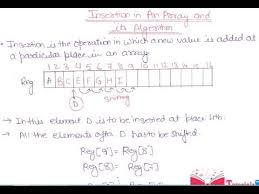 Insertion in An Array and
its Algorithm
• Insertion is the operation in which a new value is added at
a particular place in an array.
1 2 3 4 5 6 7 8 9 10 11 12 13 14 15
Reg A B C E F G H I
D
shifting
→ In this element D is to be inserted at place 4th.
→ All the elements after D has to be shifted.
Reg[9] = Reg[8]
Reg[8] = Reg[7]